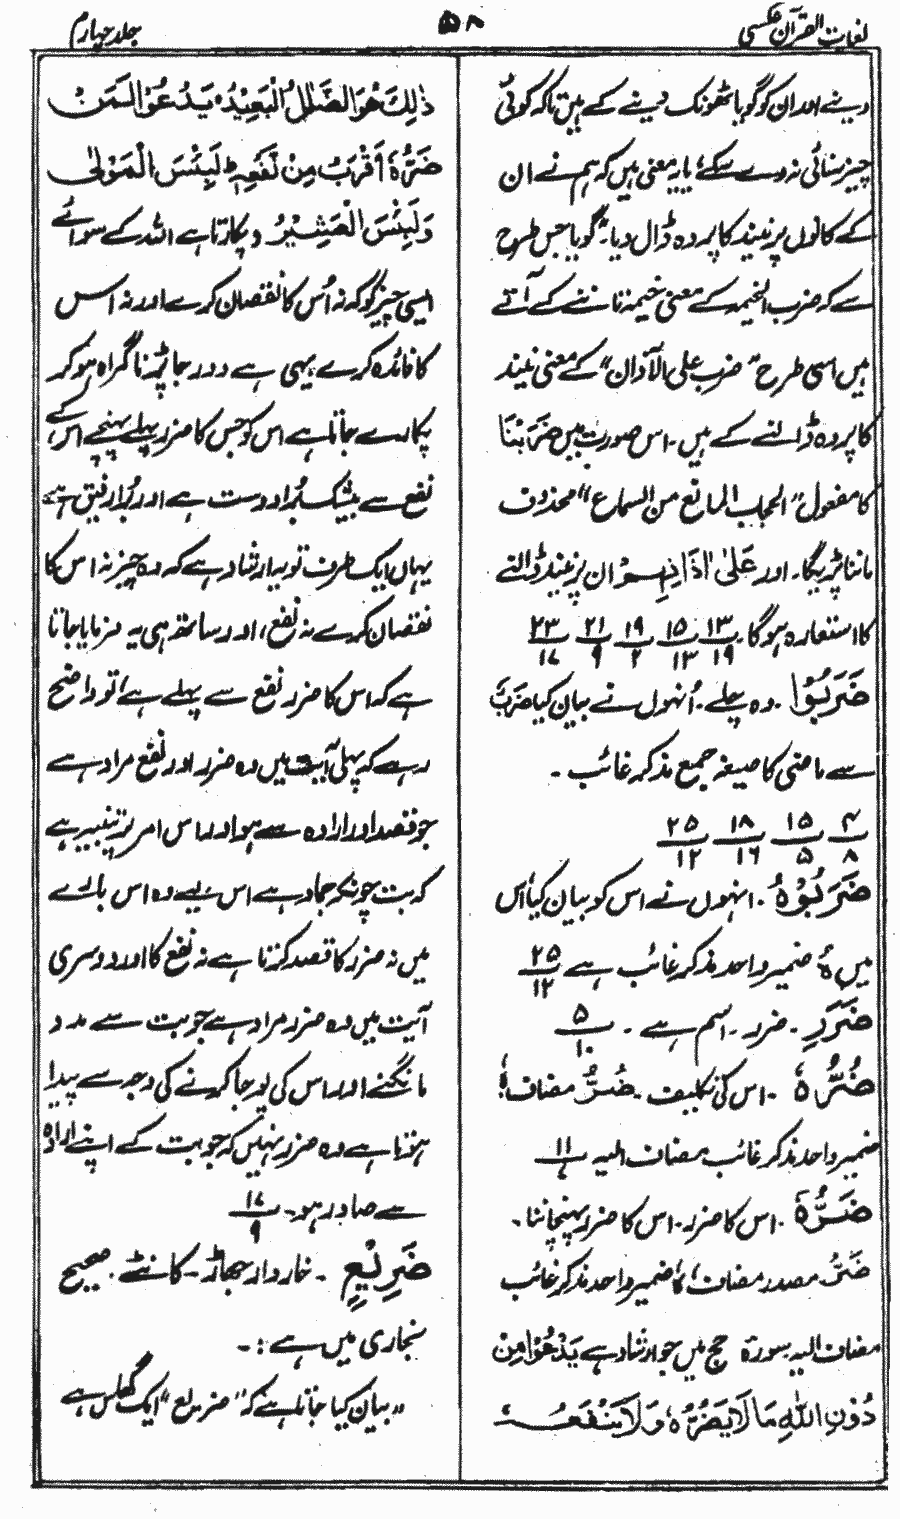 لغات القرآن عکسی
۵۸
جلد چہارم
دینے اور ان کو گویا ٹھونک دینے کے ہیں تاکہ کوئی
چیز سنائی نہ دے سکے، یا یہ معنی ہیں کہ ہم نے ان
کے کانوں پر نیند کا پردہ ڈال دیا۔ گویا جس طرح
سے کہ ضرب الخیمہ کے معنی خیمہ تاننے کے آتے
ہیں اسی طرح "ضرب علی الآذان" کے معنی نیند
کا پردہ ڈالنے کے ہیں۔ اس صورت میں ضَرَبْنَا
کا مفعول "الحجاب المانع من السماع" محذوف
ماننا پڑیگا۔ اور عَلیٰ اٰذَانِهِمْ ان پر نیند ڈالنے
کا استعارہ ہوگا ۱۳/۱۹ ۱۵/۱۳ ۱۹/۲ ۲۱/۹ ۲۳/۱۷
ضَرَبُوْا ۔ وہ چلے ۔ اُنہوں نے بیان کیا ضَرَبَ
سے ماضی کا صیغہ جمع مذکر غائب ۔
۴/۸ ۱۵/۵ ۱۸/۱۶ ۲۵/۱۲
ضَرَبُوْهُ ۔ انہوں نے اس کو بیان کیا، اس
میں ہٗ ضمیر واحد مذکر غائب ہے ۲۵/۱۲
ضَرَرِ ۔ ضرر ۔ اسم ہے ۔ ۵/۱۰
ضُرُّهٗ ۔ اس کی تکلیف ۔ ضُرُّ مضاف، ہٗ
ضمیر واحد مذکر غائب مضاف الیہ ۱۱/۷
ضَرُّهٗ ۔ اس کا ضرر ۔ اس کا ضرر پہنچانا ۔
ضَرُّ مصدر مضاف ہٗ ضمیر واحد مذکر غائب
مضاف الیہ سورۃ حج میں جو ارشاد ہے یَدْعُوْا مِنْ
دُوْنِ اللّٰهِ مَا لَا یَضُرُّهٗ وَ لَا یَنْفَعُهٗ
ذٰلِكَ هُوَ الضَّلٰلُ الْبَعِیْدُ ، یَدْعُوْا لَمَنْ
ضَرُّهٗ اَقْرَبُ مِنْ نَّفْعِهٖ لَبِئْسَ الْمَوْلٰی
وَلَبِئْسَ الْعَشِیْرُ وپکارتا ہے اللہ کے سوائے
ایسی چیز کو کہ نہ اُس کا نقصان کرے اور نہ اس
کا فائدہ کرے یہی ہے دور جا پڑنا گمراہ ہو کر
پکارے جاتا ہے اس کو جس کا ضرر پہلے پہنچے اس کے
نفع سے بیشک بُرا دوست ہے اور بُرا رفیق ہے
یہاں ایک طرف تو یہ ارشاد ہے کہ وہ چیز نہ اس کا
نقصان کرے نہ نفع، اور ساتھ ہی یہ فرمایا جاتا
ہے کہ اس کا ضرر نفع سے پہلے ہے، تو واضح
رہے کہ پہلی آیت میں وہ ضرر اور نفع مراد ہے
جو قصد اور ارادہ سے ہو اور اس امر پر تنبیہ ہے
کہ بت چونکہ جماد ہے اس لیے وہ اس بارے
میں نہ ضرر کا قصد کرتا ہے نہ نفع کا اور دوسری
آیت میں وہ ضرر مراد ہے جو بت سے مدد
مانگنے اور اس کی پوجا کرنے کی وجہ سے پیدا
ہوتا ہے وہ ضرر نہیں کہ جو بت کے اپنے ارادہ
سے صادر ہو ۔ ۱۷/۹
ضَرِیْعٍ ۔ خاردار جھاڑ ۔ کانٹے ۔ صحیح
بخاری میں ہے :۔
"بیان کیا جاتا ہے کہ "ضریع" ایک گھاس ہے